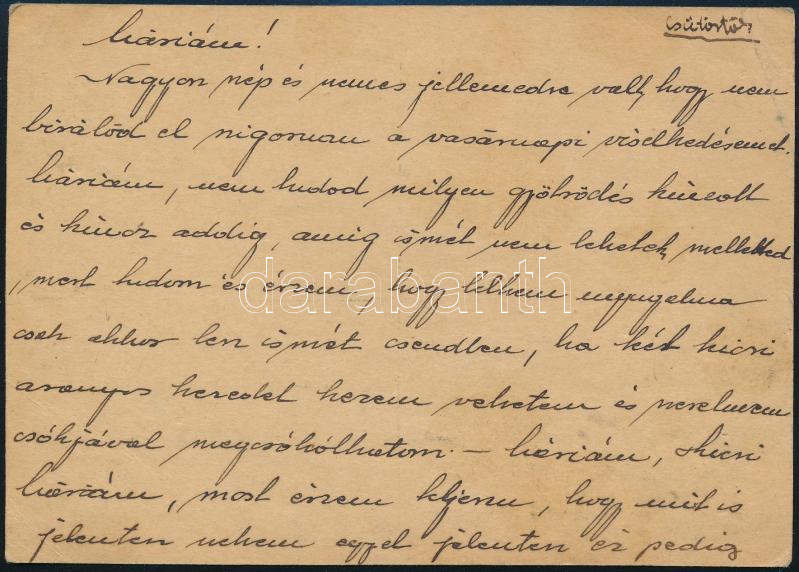 Csütörtök
Máriám!
Nagyon szép és nemes jellemedre vall, hogy nem
bírálod el szigorúan a vasárnapi viselkedésemet.
Máriám, nem tudod milyen gyötrődés kínzott
és kínoz addig, amíg ismét nem lehetek melletted
, mert tudom és érzem, hogy lelkem nyugalma
csak akkor lesz ismét csendben, ha két kicsi
aranyos kezedet kezem vehetem és szerelmem
csókjával megcsókolhatom. – Máriám, kicsi
Máriám, most érzem teljesen, hogy mit is
jelentesz nekem eggyel jelentesz és pedig
darabanth